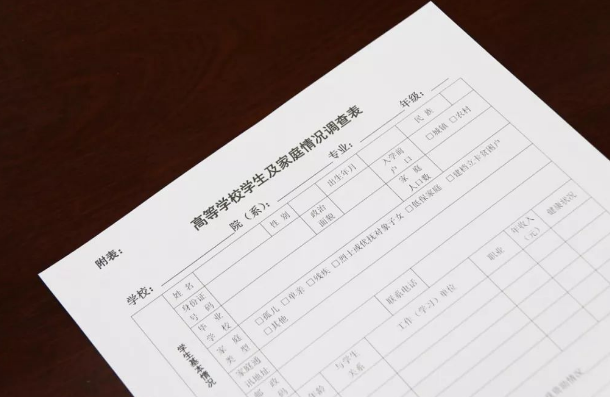 附表：
高等学校学生及家庭情况调查表
学校： 院（系）： 专业： 年级：
学生基本情况
姓名 性别 出生年月 民族
身份证号码 政治面貌 入学前户口 □城镇 □农村
毕业学校 家庭人口数
家庭类型 □孤儿 □单亲 □残疾 □烈士或优抚对象子女 □低保家庭 □建档立卡贫困户
□其他
家庭通讯地址
邮政 联系电话
年龄 与学生关系 工作（学习）单位 职业 年收入（元） 健康状况